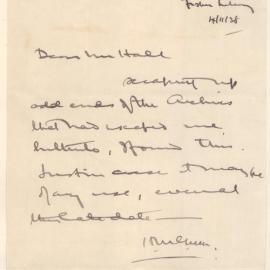 4/11/38
Dear Mr Hall
scraping up
odd ends of the Archives
that had escaped me
hitherto, I found this.
Just in case it may be
of any use, even at
this late date —